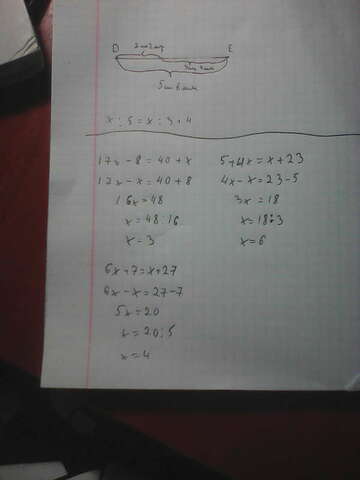 D E
x : 5 = x : 3 + 4
17x - 8 = 40 + x
17x - x = 40 + 8
16x = 48
x = 48 : 16
x = 3
5 + 4x = x + 23
4x - x = 23 - 5
3x = 18
x = 18 : 3
x = 6
6x + 7 = x + 27
6x - x = 27 - 7
5x = 20
x = 20 : 5
x = 4